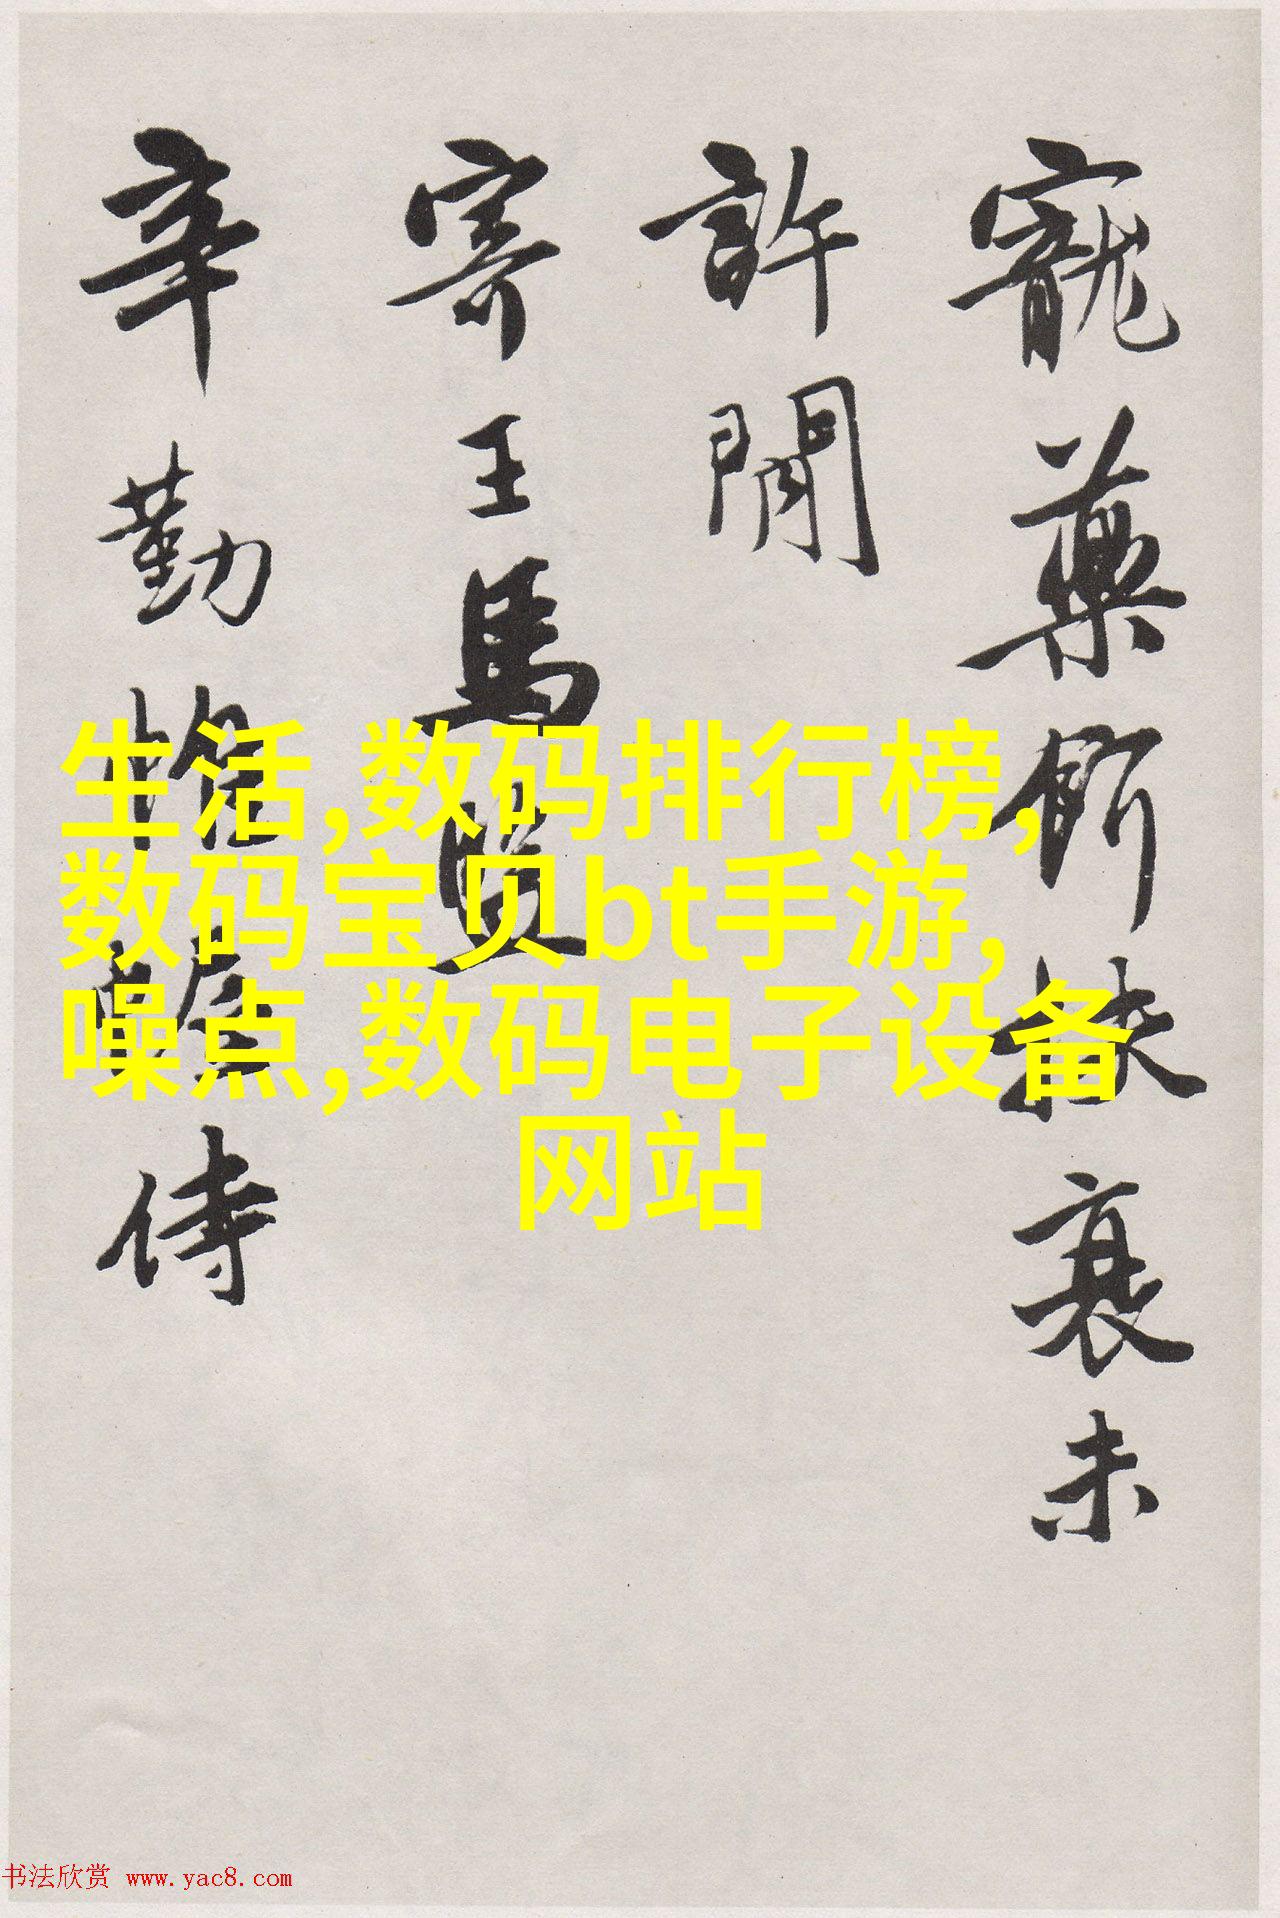 寵藥餌扶衰未
許閒
寄王馬
辛勤
侍
生活,数码排行榜,
数码宝贝bt手游,
噪点,数码电子设备
网站
书法欣赏 www.yac8.com